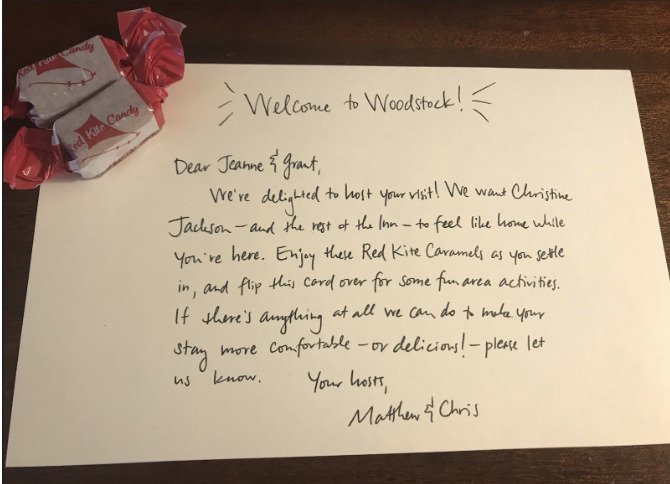 Red Kite Candy
Red Kite Candy
Welcome to Woodstock!
Dear Jeanne & Grant,
We're delighted to host your visit! We want Christine
Jackson – and the rest of the Inn – to feel like home while
you're here. Enjoy these Red Kite Caramels as you settle
in, and flip this card over for some fun area activities.
If there's anything at all we can do to make your
stay more comfortable – or delicious! – please let
us know. Your hosts,
Matthew & Chris